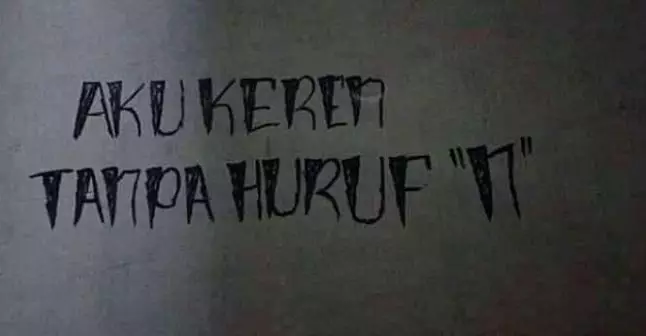 AKU KEREN
TANPA HURUF "N"